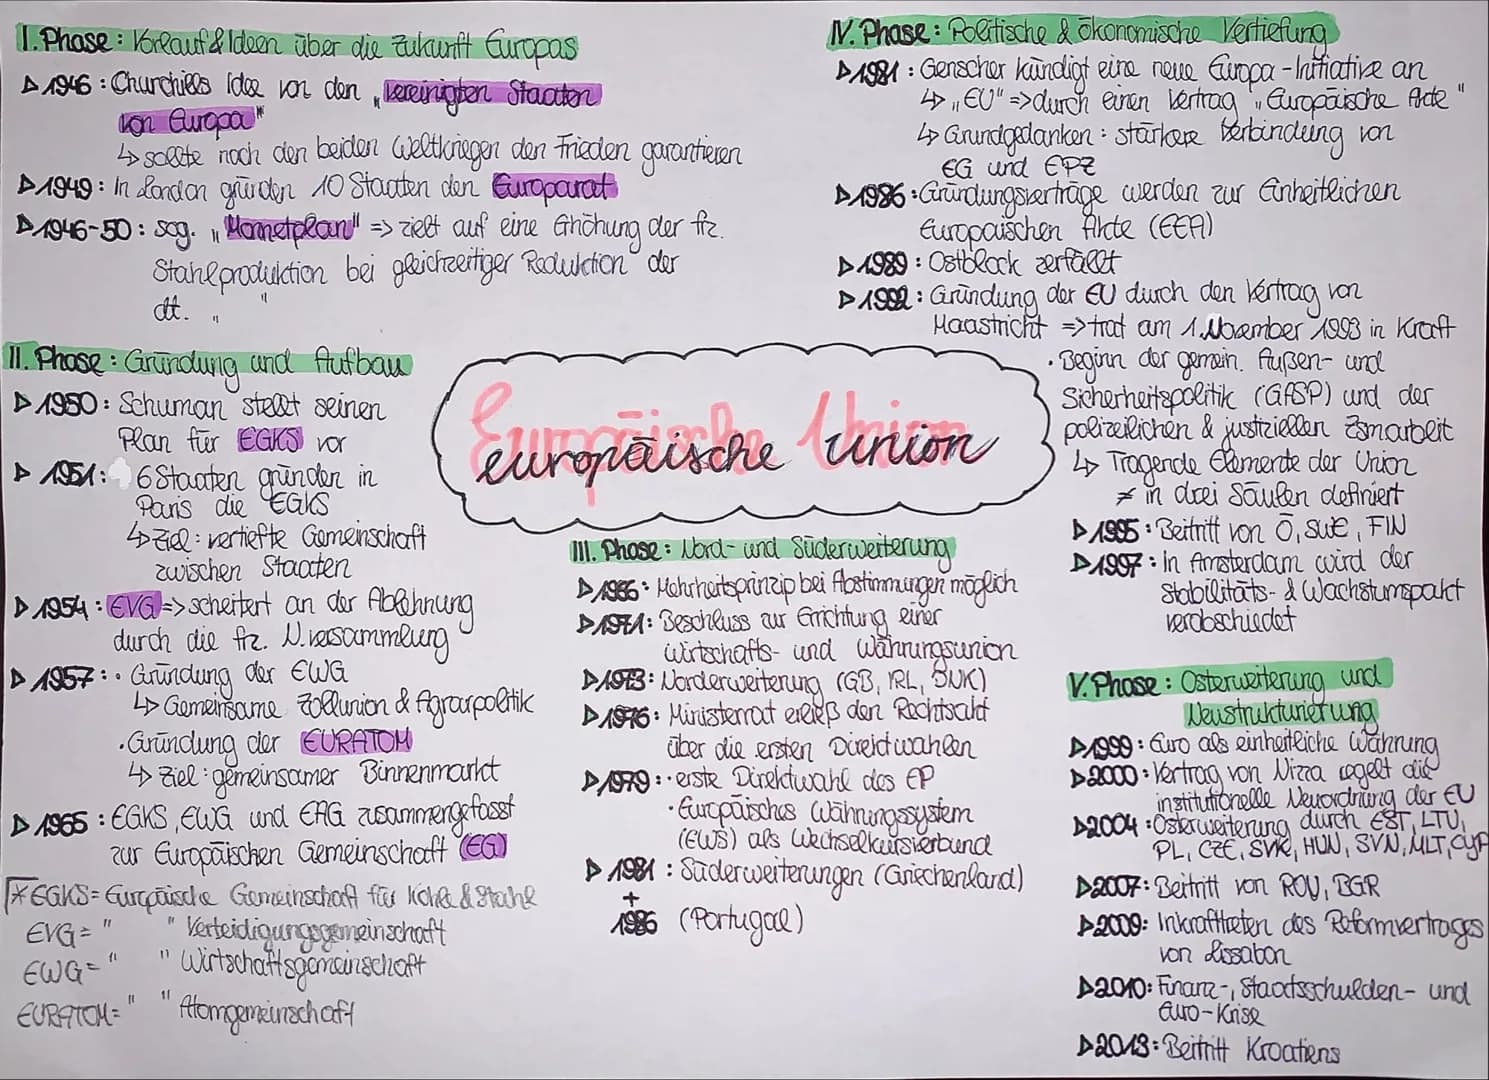 I. Phase: Vorlauf & Ideen über die Zukunft Europas
▷ 1946: Churchills Idee von den „Vereinigten Staaten
von Europa"
↳ sollte nach den beiden Weltkriegen den Frieden garantieren
▷ 1949: In London gründen 10 Staaten den Europarat
▷ 1946-50: sog. „Monnetplan" => zielt auf eine Erhöhung der frz.
Stahlproduktion bei gleichzeitiger Reduktion der
dt. "
II. Phase: Gründung und Aufbau
▷ 1950: Schuman stellt seinen
Plan für EGKS vor
▷ 1951: 6 Staaten gründen in
Paris die EGKS
↳ Ziel: vertiefte Gemeinschaft
zwischen Staaten
▷ 1954: EVG => scheitert an der Ablehnung
durch die frz. N.versammlung
▷ 1957: · Gründung der EWG
↳ Gemeinsame Zollunion & Agrarpolitik
· Gründung der EURATOM
↳ Ziel: gemeinsamer Binnenmarkt
▷ 1965: EGKS, EWG und EAG zusammengefasst
zur Europäischen Gemeinschaft (EG)
* EGKS= Europäische Gemeinschaft für Kohle & Stahl
EVG= " " Verteidigungsgemeinschaft
EWG= " " Wirtschaftsgemeinschaft
EURATOM= " " Atomgemeinschaft
Europäische Union
europäische union
III. Phase: Nord- und Süderweiterung
▷ 1966: Mehrheitsprinzip bei Abstimmungen möglich
▷ 1971: Beschluss zur Errichtung einer
Wirtschafts- und Währungsunion
▷ 1973: Norderweiterung (GB, IRL, DNK)
▷ 1976: Ministerrat erließ den Rechtsakt
über die ersten Direktwahlen
▷ 1979: · erste Direktwahl des EP
· Europäisches Währungssystem
(EWS) als Wechselkursverbund
▷ 1981: Süderweiterungen (Griechenland)
+
1986 (Portugal)
IV. Phase: Politische & ökonomische Vertiefung
▷ 1981: Genscher kündigt eine neue Europa-Initiative an
↳ „EU" => durch einen Vertrag „Europäische Akte"
↳ Grundgedanken: stärkere Verbindung von
EG und EPZ
▷ 1986: Gründungsverträge werden zur Einheitlichen
Europäischen Akte (EEA)
▷ 1989: Ostblock zerfällt
▷ 1992: Gründung der EU durch den Vertrag von
Maastricht => trat am 1. November 1993 in Kraft
· Beginn der gemein. Außen- und
Sicherheitspolitik (GASP) und der
polizeilichen & justiziellen Zsmarbeit
↳ Tragende Elemente der Union
≠ in drei Säulen definiert
▷ 1995: Beitritt von Ö, SWE, FIN
▷ 1997: In Amsterdam wird der
Stabilitäts- & Wachstumspakt
verabschiedet
V. Phase: Osterweiterung und
Neustrukturierung
▷ 1999: Euro als einheitliche Währung
▷ 2000: Vertrag von Nizza regelt die
institutionelle Neuordnung der EU
▷ 2004: Osterweiterung durch EST, LTU,
PL, CZE, SVK, HUN, SVN, MLT, CYP
▷ 2007: Beitritt von ROU, BGR
▷ 2009: Inkrafttreten des Reformvertrages
von Lissabon
▷ 2010: Finanz-, Staatsschulden- und
Euro-Krise
▷ 2013: Beitritt Kroatiens